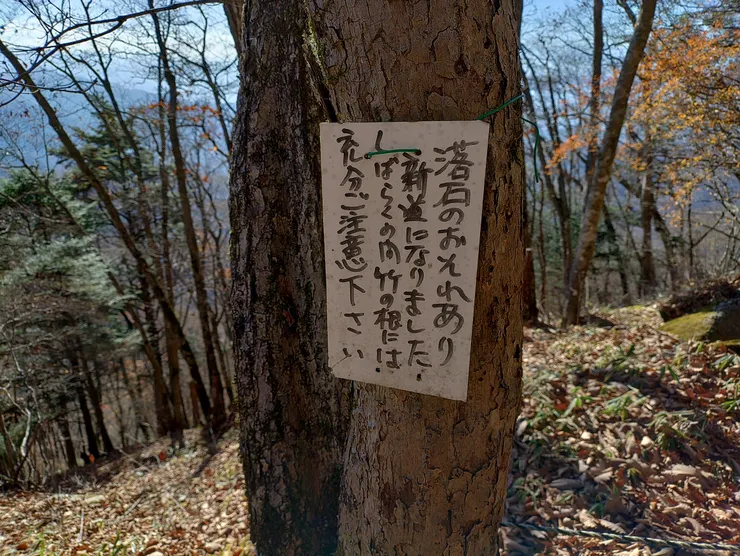 落石のおそれあり
新道になりました!
しばらくの内竹の根には!
充分ご注意下さい